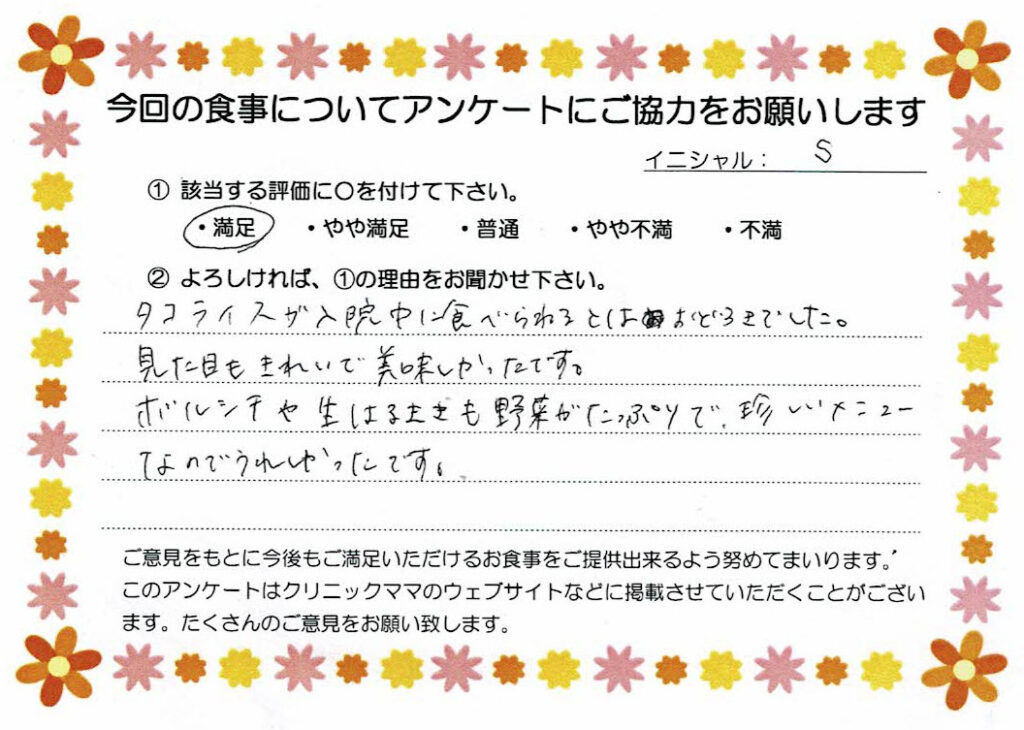 今回の食事についてアンケートにご協力をお願いします
イニシャル： S
① 該当する評価に〇を付けて下さい。
・満足 ・やや満足 ・普通 ・やや不満 ・不満
② よろしければ、①の理由をお聞かせ下さい。
タコライスが入院中に食べられるとは おどろきでした。
見た目もきれいで美味しかったです。
ボルシチや生はるまきも野菜がたっぷりで、珍しいメニュー
なのでうれしかったです。
ご意見をもとに今後もご満足いただけるお食事をご提供出来るよう努めてまいります。
このアンケートはクリニックママのウェブサイトなどに掲載させていただくことがござい
ます。たくさんのご意見をお願い致します。